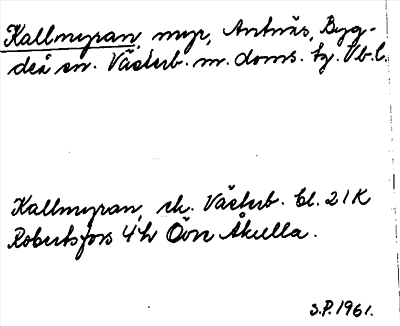 Kallmyran, myr, Antnäs, Byg-
deå sn. Västerb. m. doms. tg. Vb. l.
Kallmyran, ek. Västerb. bl. 21K
Robertsfors 4 h Övre Åkulla.
S.P. 1961.